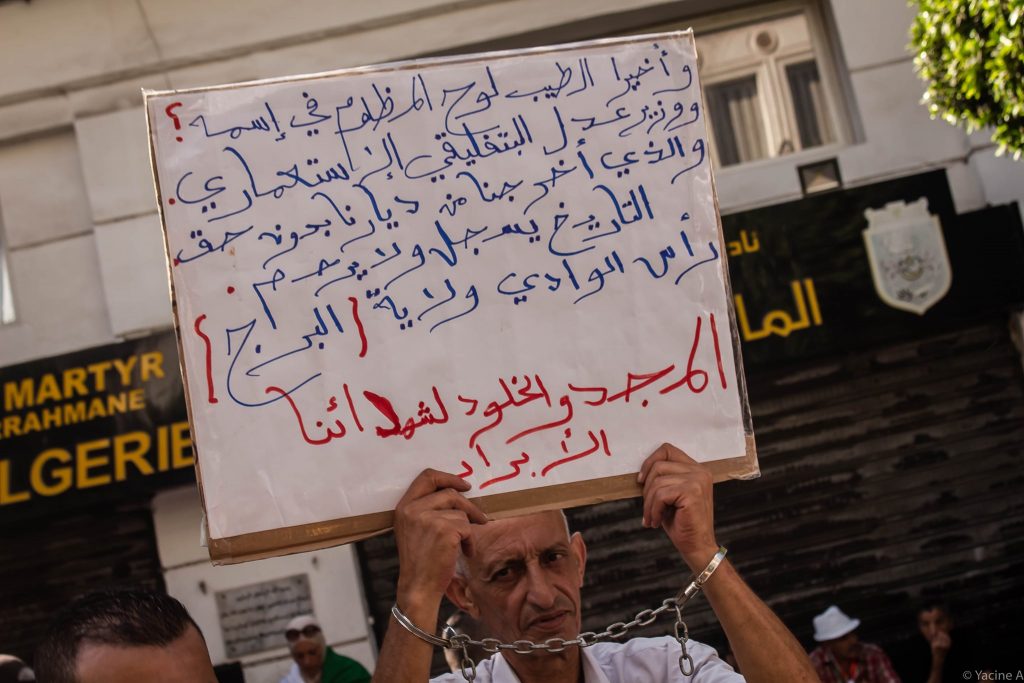 وأخيرا الطيب لوح المظلوم في إسمه ؟
ووزير عدل التفليقي الإستعماري.
والذي أخرجنا من ديارنا بدون حق.
التاريخ يسجل ولا يرحم.
رأس الوادي ولاية {البرج}
المجد والخلود لشهدائنا
الأبرار
MARTYR
RRAHMANE
LGERIE
ناد
الما
© Yacine A